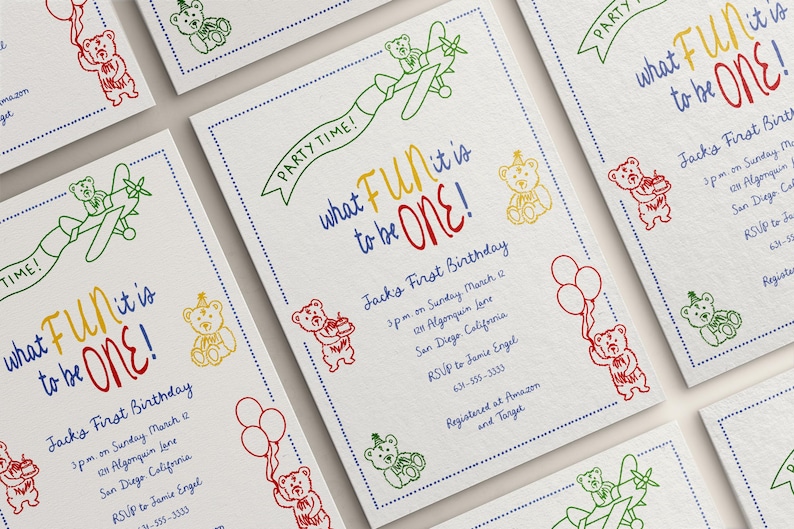 Amazon
Target
PARTY TIME!
what FUN it is
to be ONE!
Jack's First Birthday
3 p.m. on Sunday, March 12
1211 Algonquin Lane
San Diego, California
RSVP to Jamie Engel
631-555-3333
Registered at Amazon
and Target
TIME!
what FUN it is
to be ONE!
Jack's First Birthday
3 p.m. on Sunday, March 12
1211 Algonquin Lane
San Diego, California
RSVP to Jamie Engel
631-555-3333
PARTY
what FUN it is
to be ONE!
Jack's First
3 p.m. on Sunday,
1211 Algonquin
San Diego,
RSVP to
631-555-
Registered